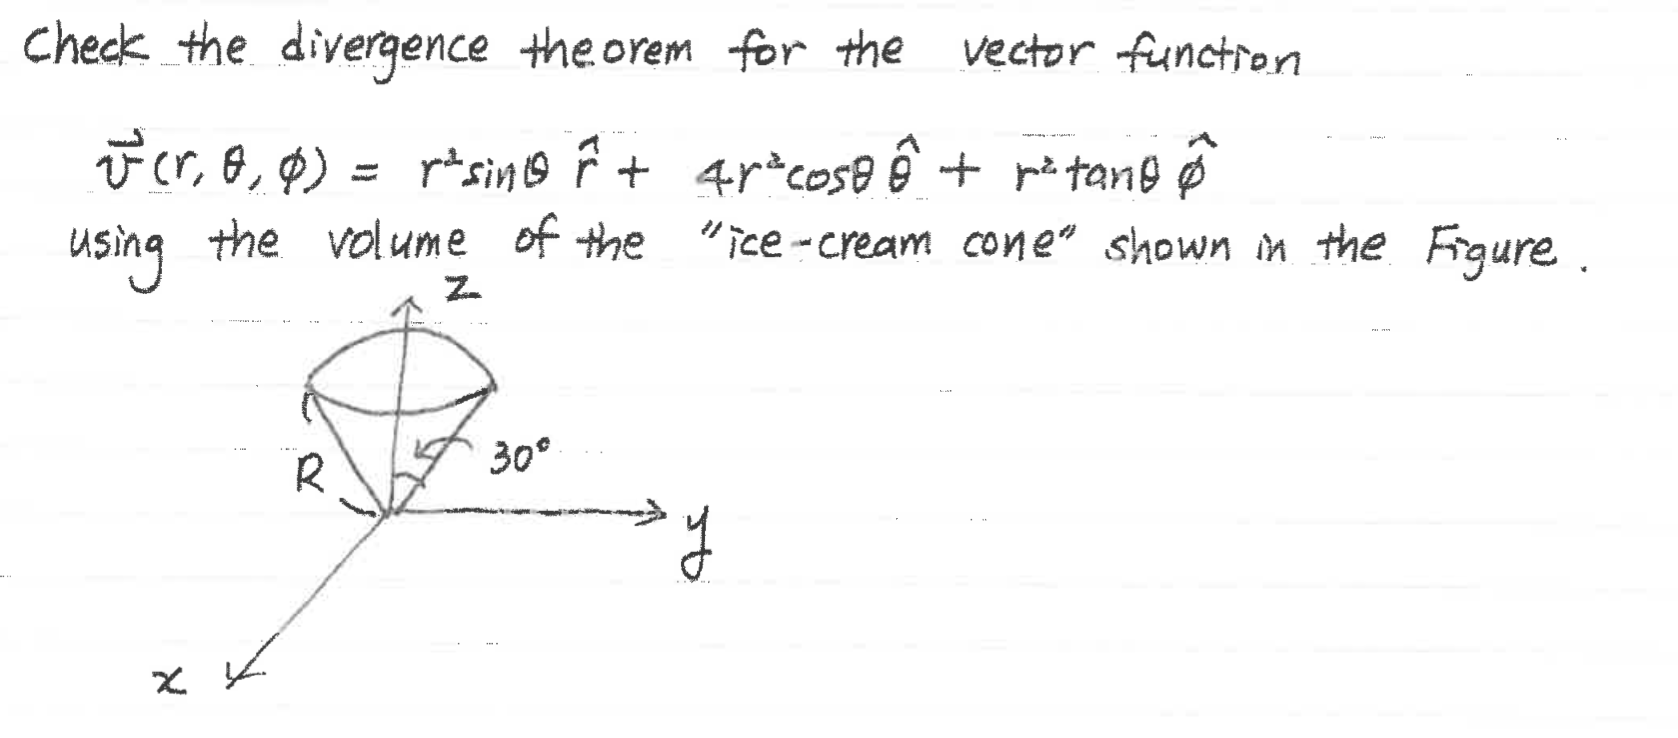 Check the divergence theorem for the vector function
v⃗(r, θ, φ) = r²sinθ r̂ + 4r²cosθ θ̂ + r²tanθ φ̂
using the volume of the "ice-cream cone" shown in the Figure.
z
30°
R
y
x